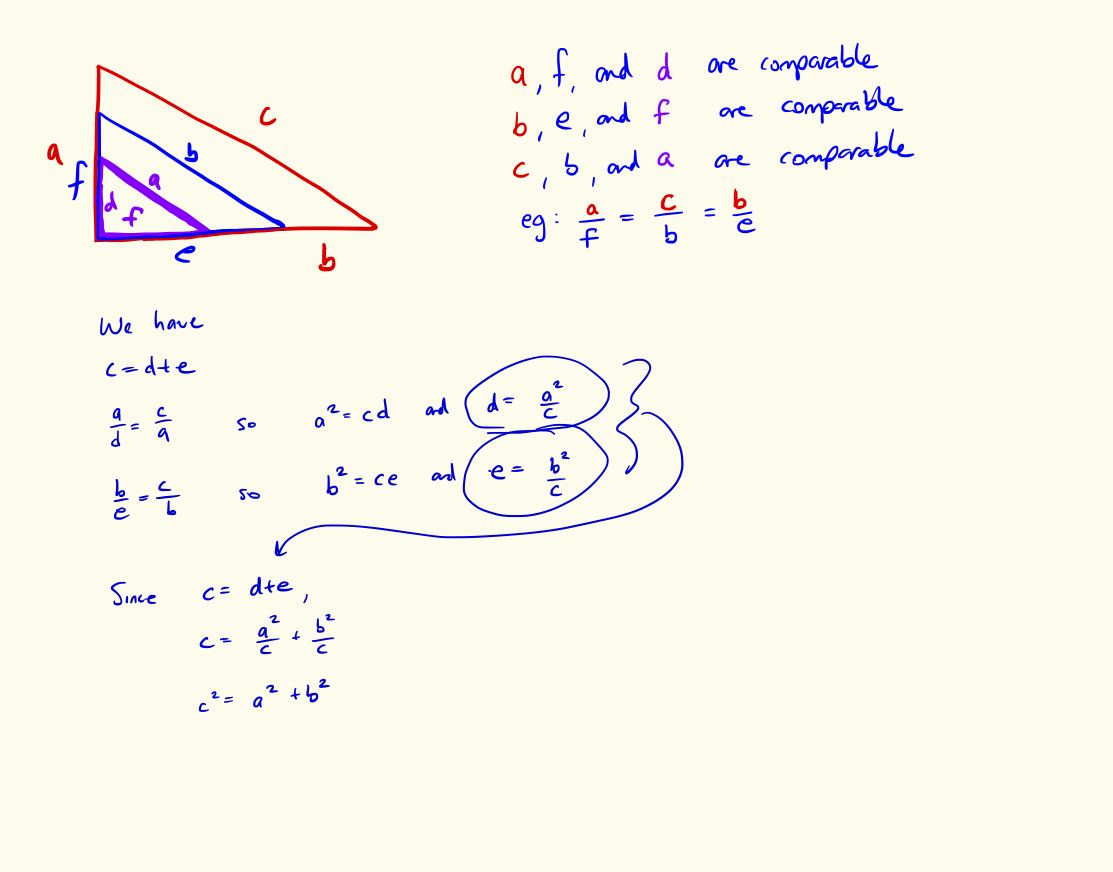 a, f, and d are comparable
b, e, and f are comparable
c, b, and a are comparable
eg: a/f = c/b = b/e
c
b
a
a
f
d
f
e
b
We have
c = d+e
a/d = c/a so a² = cd and d = a²/c
b/e = c/b so b² = ce and e = b²/c
Since c = d+e,
c = a²/c + b²/c
c² = a² + b²